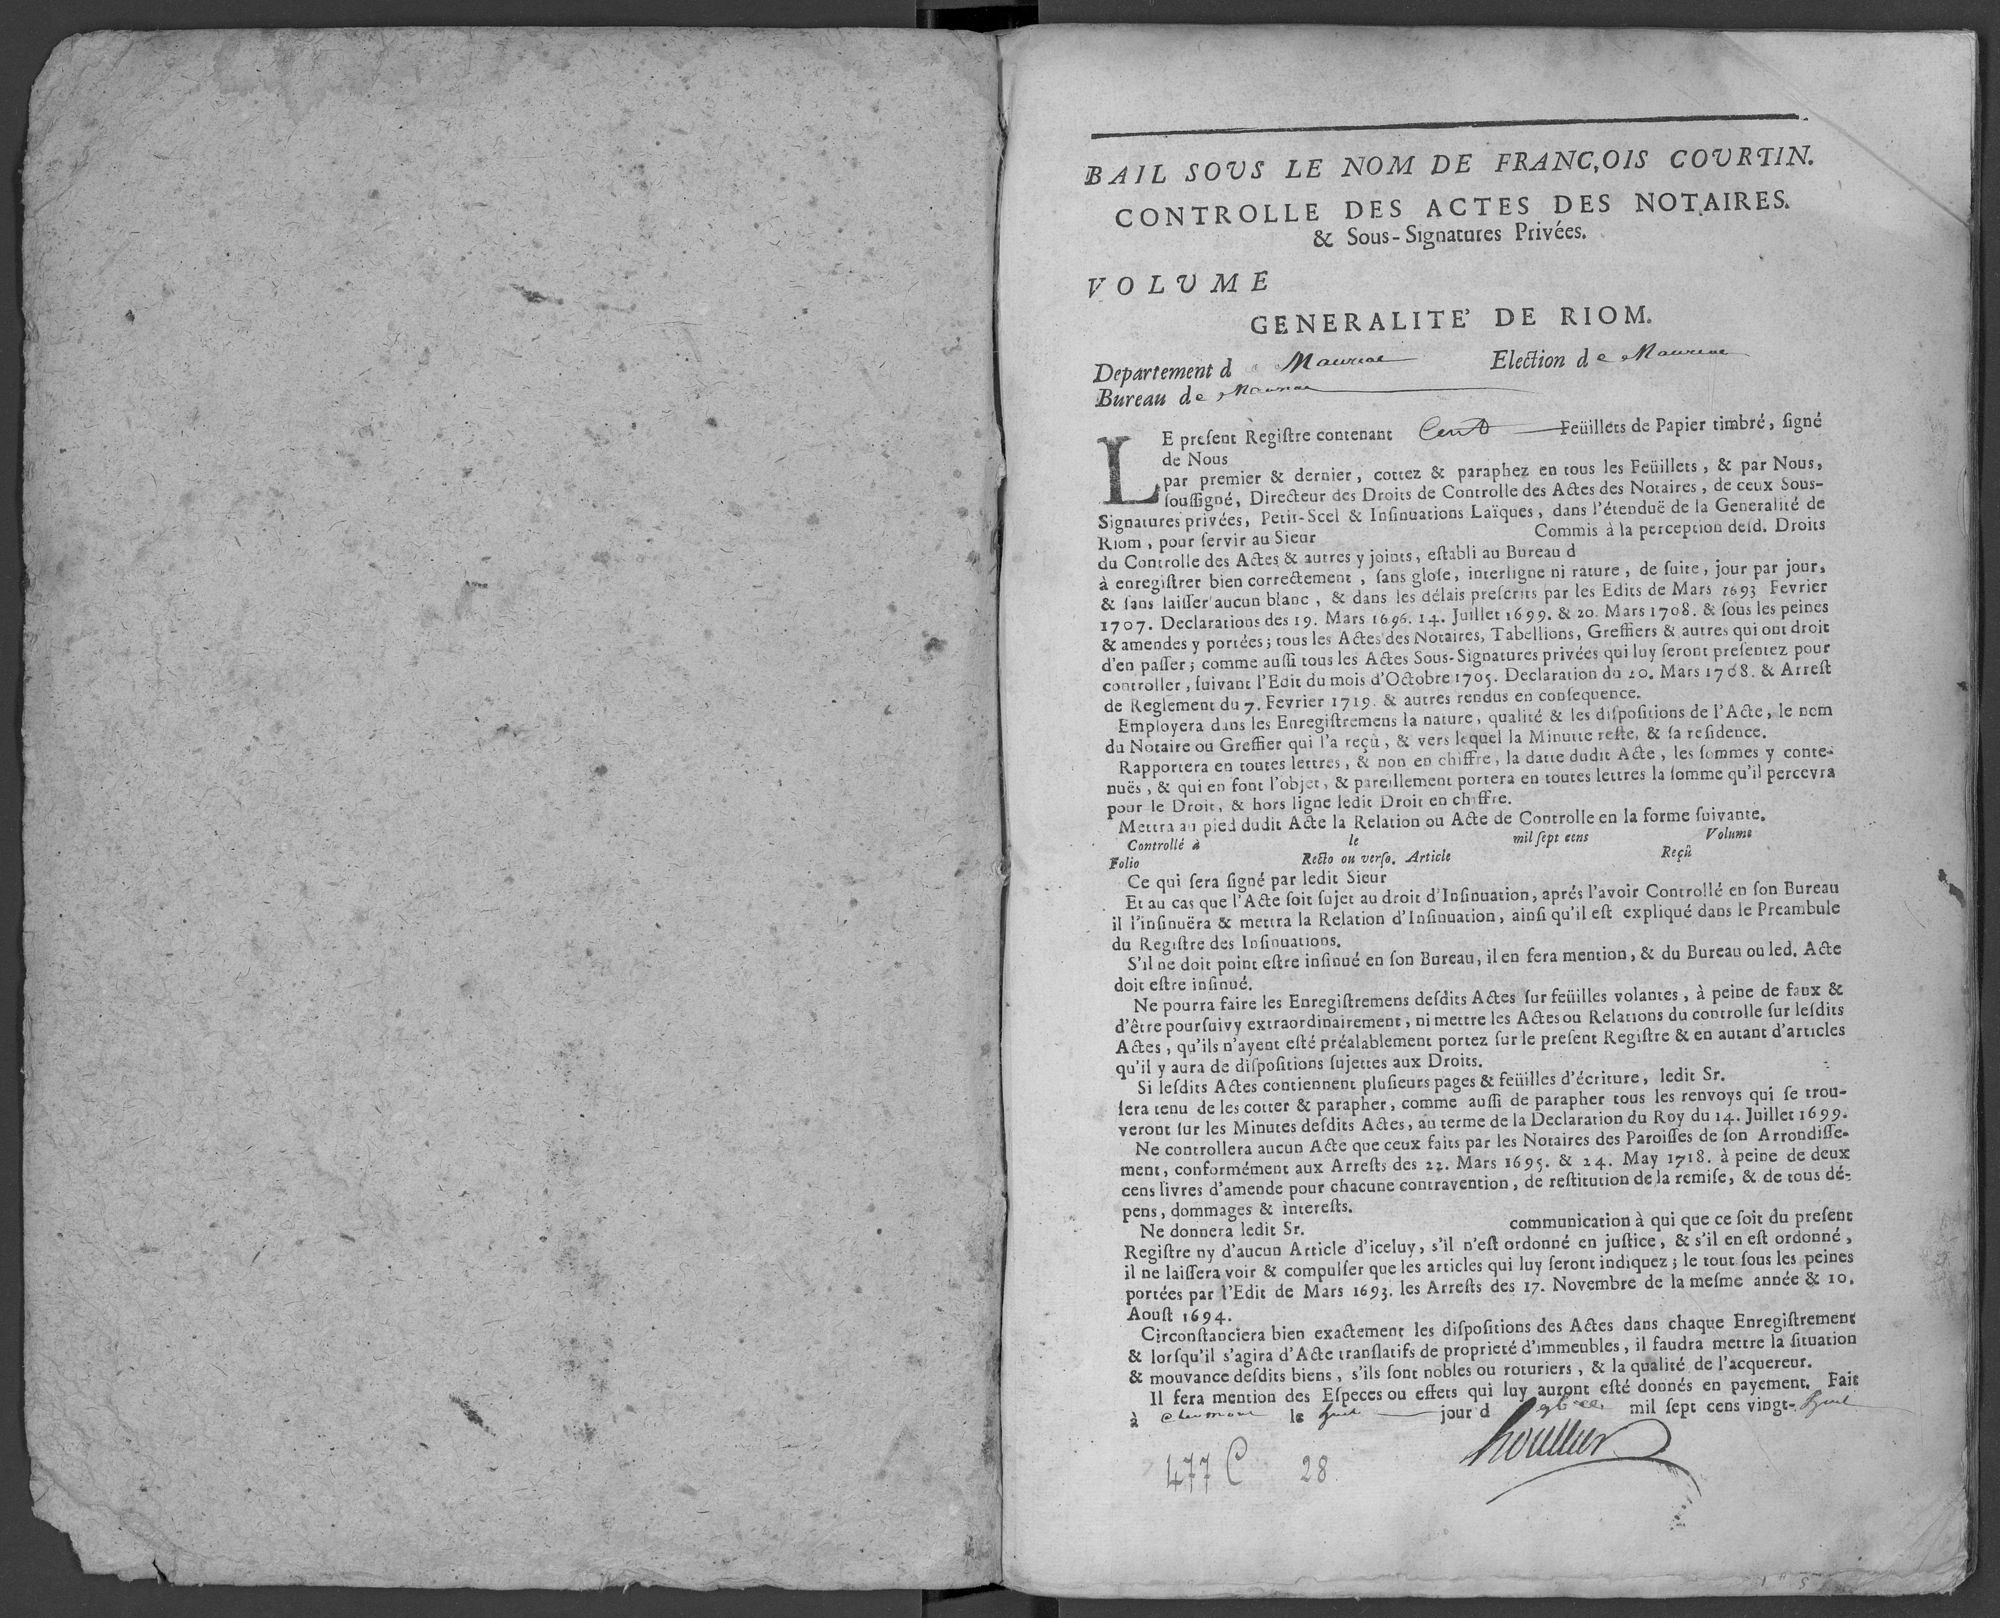 BAIL SOUS LE NOM DE FRANC,OIS COURTIN.
CONTROLLE DES ACTES DES NOTAIRES.
& Sous-Signatures Privées.
VOLUME
GENERALITE' DE RIOM.
Departement d e Mauriac Election d e Mauriac
Bureau de Mauriac
LE preſent Regiſtre contenant Cent Feüillets de Papier timbré, ſigné
de Nous
par premier & dernier, cottez & paraphez en tous les Feüillets, & par Nous,
ſouſſigné, Directeur des Droits de Controlle des Actes des Notaires, de ceux Sous-
Signatures privées, Petit-Scel & Inſinuations Laïques, dans l'étenduë de la Generalité de
Riom, pour ſervir au Sieur Commis à la perception deſd. Droits
du Controlle des Actes & autres y joints, eſtabli au Bureau d
à enregiſtrer bien correctement, ſans gloſe, interligne ni rature, de ſuite, jour par jour,
& ſans laiſſer aucun blanc, & dans les délais preſcrits par les Edits de Mars 1693 Fevrier
1707. Declarations des 19. Mars 1696. 14. Juillet 1699. & 20. Mars 1708. & ſous les peines
& amendes y portées; tous les Actes des Notaires, Tabellions, Greffiers & autres qui ont droit
d'en paſſer; comme auſſi tous les Actes Sous-Signatures privées qui luy ſeront preſentez pour
controller, ſuivant l'Edit du mois d'Octobre 1705. Declaration du 20. Mars 1708. & Arreſt
de Reglement du 7. Fevrier 1719. & autres rendus en conſequence.
Employera dans les Enregiſtremens la nature, qualité & les diſpoſitions de l'Acte, le nom
du Notaire ou Greffier qui l'a reçû, & vers lequel la Minutte reſte, & ſa reſidence.
Rapportera en toutes lettres, & non en chiffre, la datte dudit Acte, les ſommes y conte-
nuës, & qui en font l'objet, & pareillement portera en toutes lettres la ſomme qu'il percevra
pour le Droit, & hors ligne ledit Droit en chiffre.
Mettra au pied dudit Acte la Relation ou Acte de Controlle en la forme ſuivante.
Controllé à le mil ſept cens Volume
Folio Recto ou verſo. Article Reçû
Ce qui ſera ſigné par ledit Sieur
Et au cas que l'Acte ſoit ſujet au droit d'Inſinuation, aprés l'avoir Controllé en ſon Bureau
il l'inſinuëra & mettra la Relation d'Inſinuation, ainſi qu'il eſt expliqué dans le Preambule
du Regiſtre des Inſinuations.
S'il ne doit point eſtre inſinué en ſon Bureau, il en fera mention, & du Bureau ou led. Acte
doit eſtre inſinué.
Ne pourra faire les Enregiſtremens deſdits Actes ſur feüilles volantes, à peine de faux &
d'être pourſuivy extraordinairement, ni mettre les Actes ou Relations du controlle ſur leſdits
Actes, qu'ils n'ayent eſté préalablement portez ſur le preſent Regiſtre & en autant d'articles
qu'il y aura de diſpoſitions ſujettes aux Droits.
Si leſdits Actes contiennent pluſieurs pages & feüilles d'écriture, ledit Sr.
ſera tenu de les cotter & parapher, comme auſſi de parapher tous les renvoys qui ſe trou-
veront ſur les Minutes deſdits Actes, au terme de la Declaration du Roy du 14. Juillet 1699.
Ne controllera aucun Acte que ceux faits par les Notaires des Paroiſſes de ſon Arrondiſſe-
ment, conformément aux Arreſts des 22. Mars 1695. & 24. May 1718. à peine de deux
cens livres d'amende pour chacune contravention, de reſtitution de la remiſe, & de tous dé-
pens, dommages & intereſts.
Ne donnera ledit Sr. communication à qui que ce ſoit du preſent
Regiſtre ny d'aucun Article d'iceluy, s'il n'eſt ordonné en juſtice, & s'il en eſt ordonné,
il ne laiſſera voir & compulſer que les articles qui luy ſeront indiquez; le tout ſous les peines
portées par l'Edit de Mars 1693. les Arreſts des 17. Novembre de la meſme année & 10.
Aouſt 1694.
Circonſtanciera bien exactement les diſpoſitions des Actes dans chaque Enregiſtrement
& lorſqu'il s'agira d'Acte tranſlatifs de proprieté d'immeubles, il faudra mettre la ſituation
& mouvance deſdits biens, s'ils ſont nobles ou roturiers, & la qualité de l'acquereur.
Il fera mention des Eſpeces ou effets qui luy auront eſté donnés en payement. Fait
à Clermont le huit jour d 9bre mil ſept cens vingt-huit
477 C 28